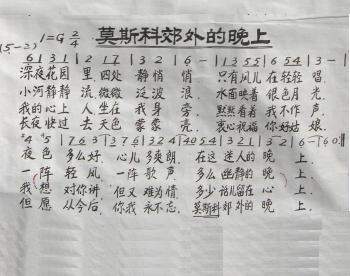 (5-2) 1=G 2/4 莫斯科郊外的晚上
6 1 3 1 | 2 1 7 | 3 2 | 6 - | 1 3 5 5 | 6 5 4 | 3 - |
深夜花园 里,四处 静悄 悄 只有风儿 在轻轻 唱,
小河静静 流微微 泛波 浪, 水面映着 银色月 光,
我的心上 人坐在 我身 旁, 默默看着 我不作 声,
长夜快过 去天色 蒙蒙 亮, 衷心祝福 你好姑 娘,
#4 #5 | 7 6 3 | 7 6 | 3 2 4 | 0 5 4 | 3 2 1 | 3 2 | 6 - | 6 0 ‖
夜色 多么好, 心儿 多爽朗, 在这 迷人的 晚 上.
一阵 轻风, 一阵 歌声, 多么 幽静的 晚 上.
我想 对你讲, 但又 难为情, 多少 话儿留在 心 上.
但愿 从今后, 你我 永不忘, 莫斯科郊外的 晚 上.